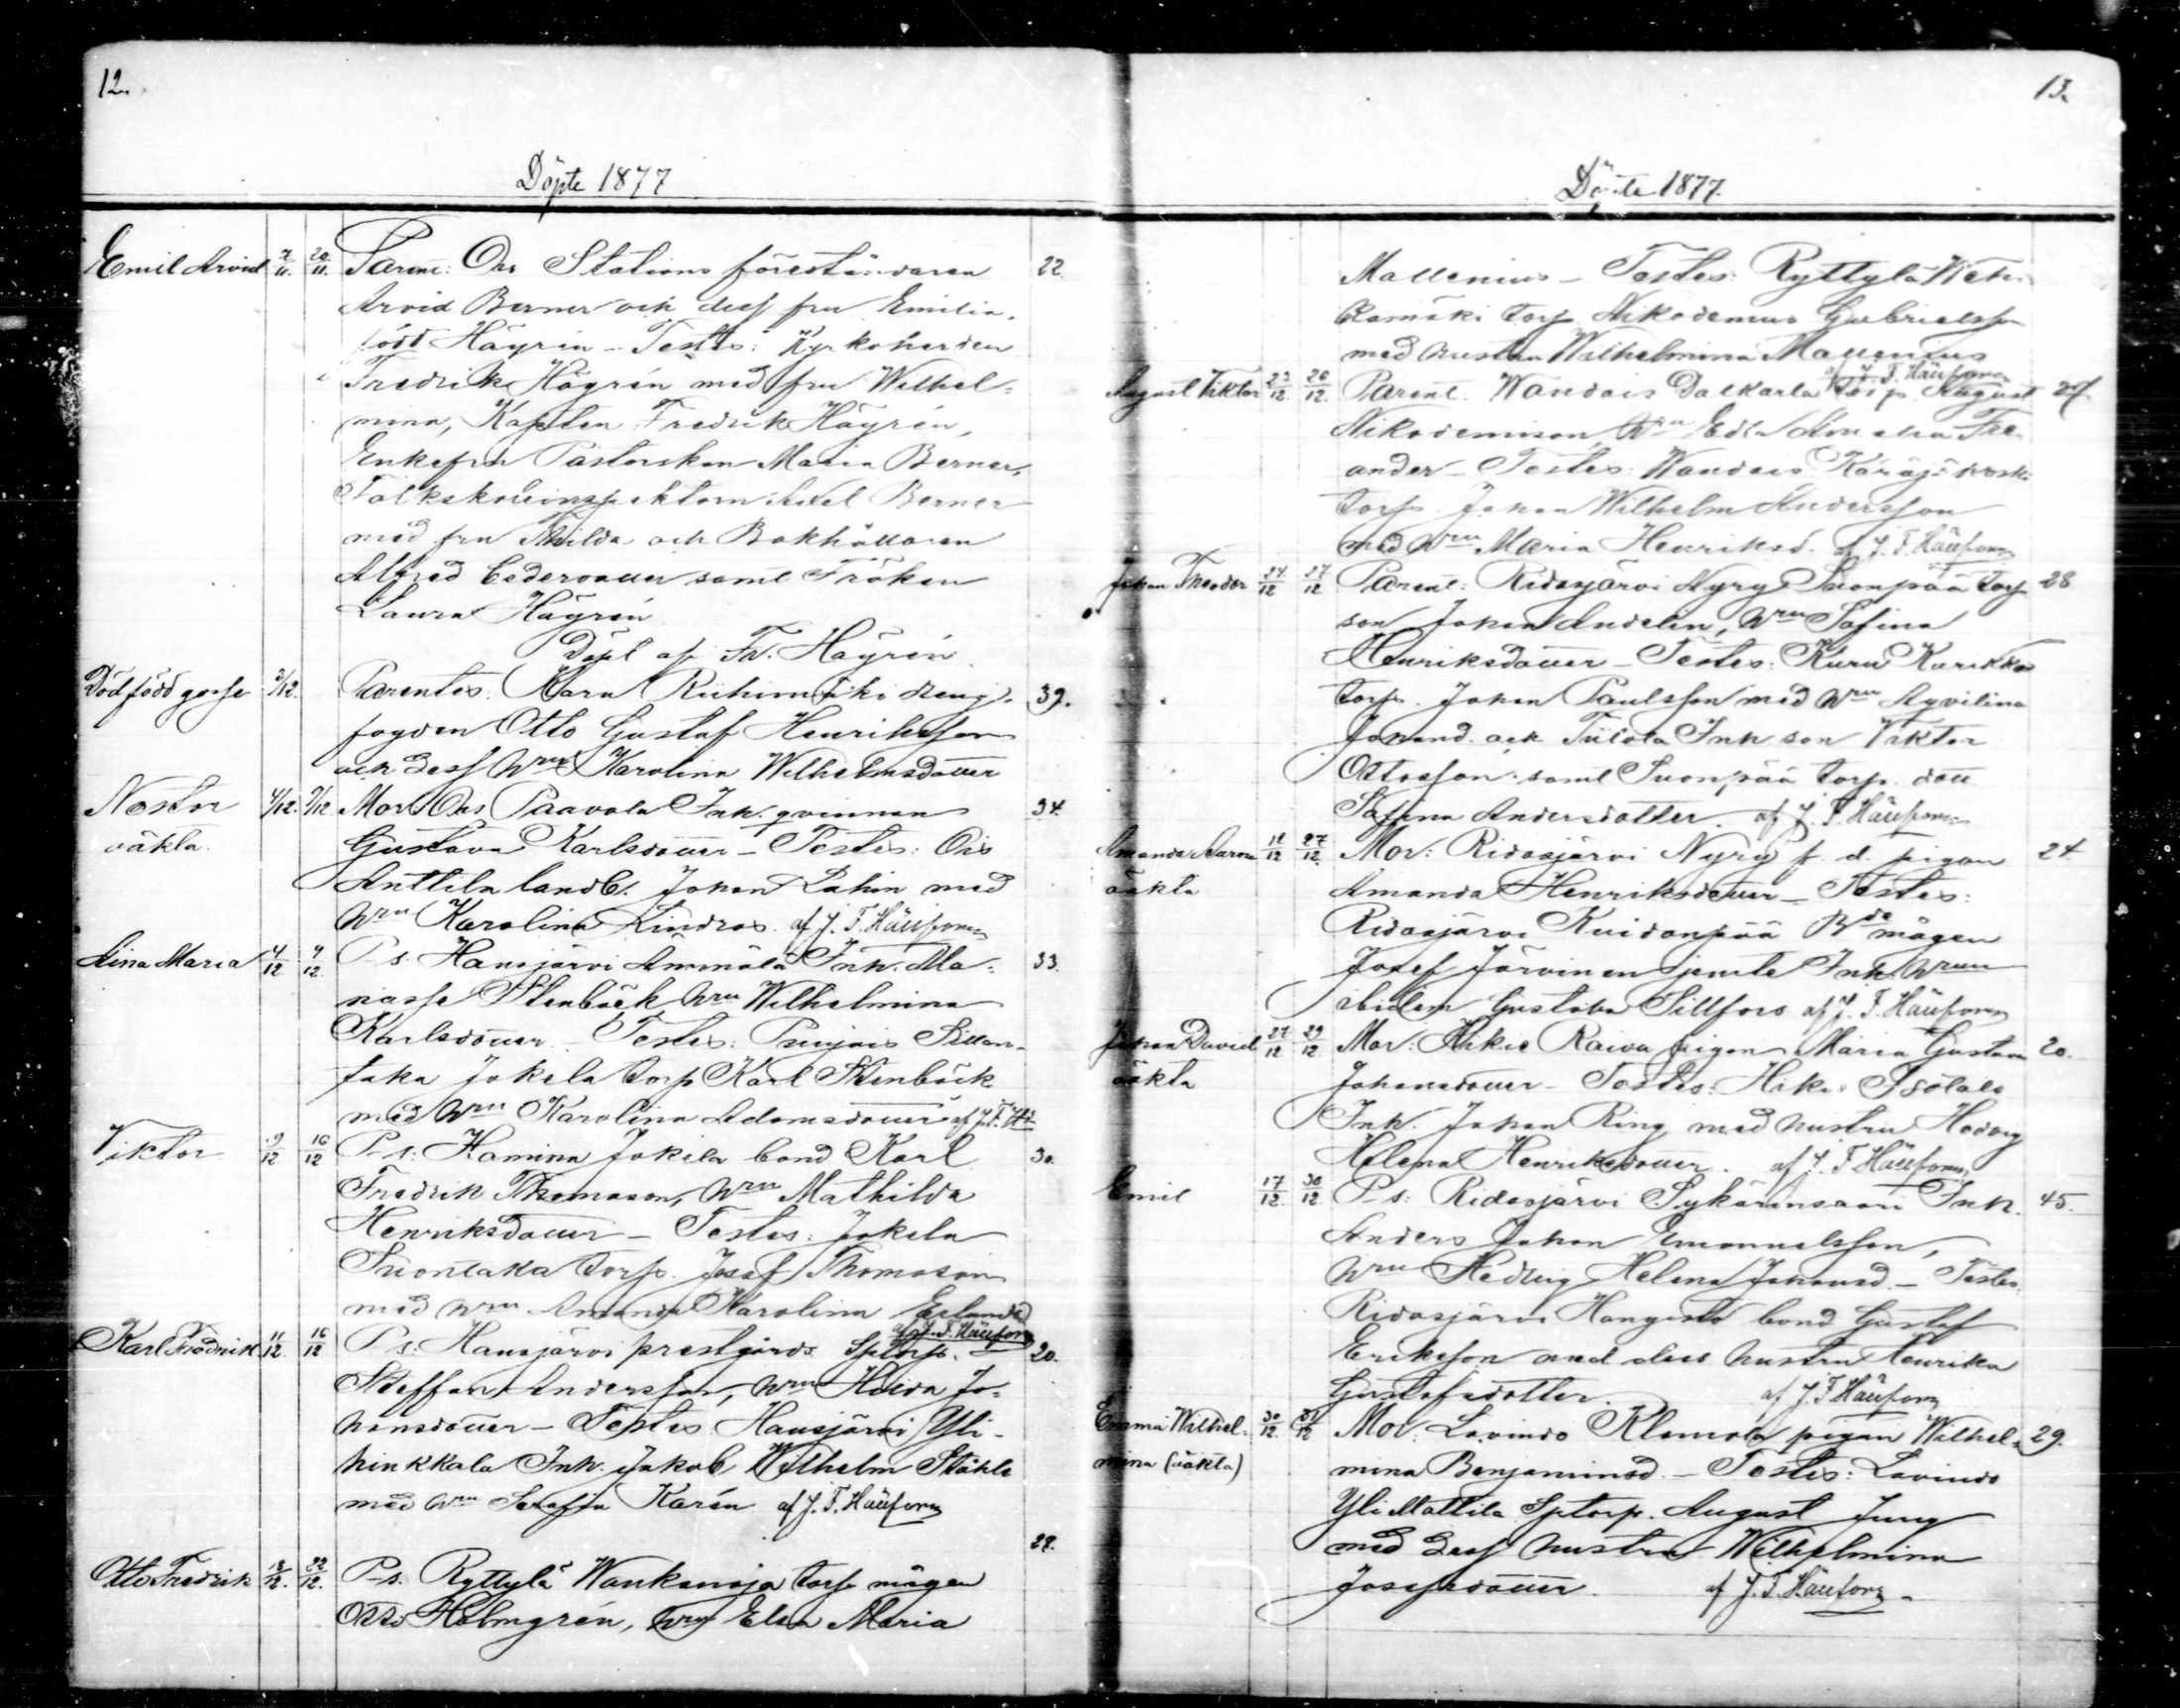 12.
Döpte 1877
Emil Arvid 7/11. 20/11. Parent: Ois Stations föreståndaren 22.
Arvid Berner och dess fru Emilia,
född Häyrén - Testes: Kyrkoherden
Fredrik Häyrén med fru Wilhel-
mina, Kapten Fredrik Häyrén,
Enkefru Pastorskan Maria Berner,
Folkskoleinspektorn Axel Berner
med fru Thilda och Bokhållaren
Alfred Cedervaller samt Fröken
Laura Häyrén
Döpt af Fr. Häyrén
Dödfödd gosse 2/12. Parentes: Kara Riihimäki dreng- 39.
fogden Otto Gustaf Henriksson
och dess hru Karolina Wilhelmsdotter
Nestor 4/12. 9/12. Mor: Ois Paavola Inh. qvinnan 34.
oäkta. Gustava Karlsdotter - Testes: Ois
Anttila landb. Johan Lahin med
hru Karolina Lindros. af J. F. Häufom
Aina Maria 4/12 9/12. P-s. Hausjärvi Ämmälä Inh. Ma- 33.
nasse Stenbäck hru Wilhelmina
Karlsdotter. Testes: Puujais Sillan-
taka Jokela torp Karl Stenbäck
med hru Karolina Adamsdotter af J. F. Hä
Viktor 9/12 16/12 P-s: Hamina Jokela bond Karl 30.
Fredrik Thomasson, hru Mathilda
Henriksdotter - Testes: Jokela
Suontaka torp. Josef Thomasson
med hru Amanda Karolina Erlund
af J. F. Häufom
Karl Fredrik 11/12. 16/12 P-s: Hausjärvi prestgårds Sptorp. 20.
Staffan Andersson, hru Hilda Jo-
hansdotter - Testes Hausjärvi Yli-
hinkkala Inh. Jakob Wilhelm Ståhle
med hru Serafia Karén af J. F. Häufom
Otto Fredrik 18/12. 22/12. P-s. Ryttylä Wankanoja torp mågen 29.
Otto Holmgrén, hru Elsa Maria
13.
Döpte 1877.
Mallenius - Testes: Ryttylä
torp Nikodemus Gabrielsson
med hustru Wilhelmina Mallenius
af J. F. Häufom
August Viktor 23/12. 26/12. Parent. Wandais Dalkarla Torp. August
Nikodemusson, hru Edla Amalia
ander - Testes: Wandais
torp. Johan Wilhelm Andersson
med hru Maria Henriksd. af J. F. Häufom
Johan Theodor 24/12 27/12 Parent: Ridasjärvi Nyry Suonpää torp 28
son Johan Andelin, hru Sofina
Henriksdotter - Testes: Kuru Kurikka
torp. Johan Paulsson med hru Agvilina
Johansd. och Tiilola Inh. son Viktor
Ottosson samt Suonpää torp. dott
Safina Andersdotter. af J. F. Häufom
Amanda Aurora 18/12 27/12. Mor: Ridasjärvi Nyry f. d. pigan 24
oäkta Amanda Henriksdotter - Testes:
Ridasjärvi Kuidanpää Bde mågen
Josef Järvinen jemte Inh. hrun
ibidem Gustava Sillfors af J. F. Häufom
Johan David 27/12 29/12 Mor: Hikiä Raiva pigan Maria Gustava 20.
oäkta Johansdotter - Testes: Hikiä Isotalo
Inh. Johan Ring med hustru Hedvig
Helena Henriksdotter. af J. F. Häufom
Emil 17/12. 30/12. P-s: Ridasjärvi Sykärinsaari Inh. 45.
Anders Johan Emanuelsson,
hru Hedvig Helena Johansd - Testes.
Ridasjärvi Hangisto bond Gustaf
Eriksson med dess hustru Henrika
Gustafsdotter. af J. F. Häufom
Emma Wilhel- 30/12. 31/12 Mor. Lavinto Klemola pigan Wilhel- 29.
mina (oäkta) mina Benjaminsd. - Testes: Lavinto
Yli Mattila Sptorp. August Jung
med dess hustru Wilhelmina
Josefsdotter. af J. F. Häufom